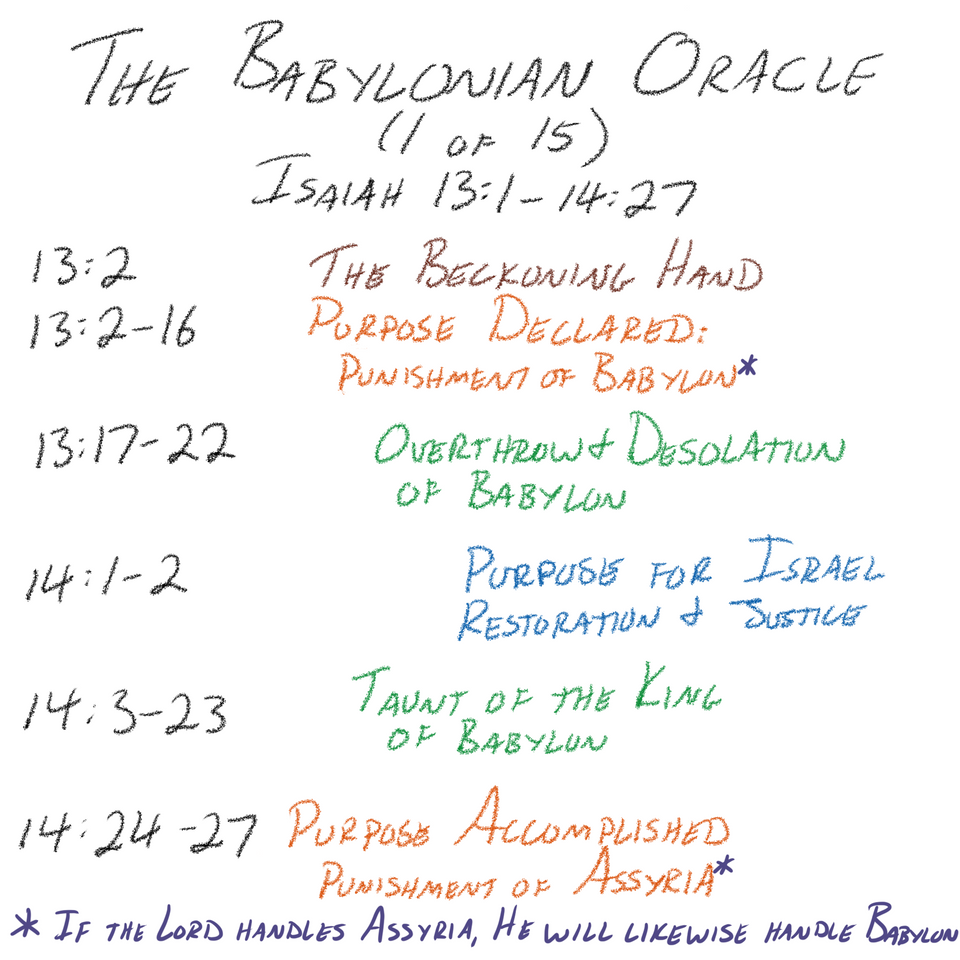 THE BABYLONIAN ORACLE
(1 OF 15)
ISAIAH 13:1-14:27
13:2 THE BECKONING HAND
13:2-16 PURPOSE DECLARED:
PUNISHMENT OF BABYLON*
13:17-22 OVERTHROW & DESOLATION
OF BABYLON
14:1-2 PURPOSE FOR ISRAEL
RESTORATION & JUSTICE
14:3-23 TAUNT OF THE KING
OF BABYLON
14:24-27 PURPOSE ACCOMPLISHED
PUNISHMENT OF ASSYRIA*
* IF THE LORD HANDLES ASSYRIA, HE WILL LIKEWISE HANDLE BABYLON